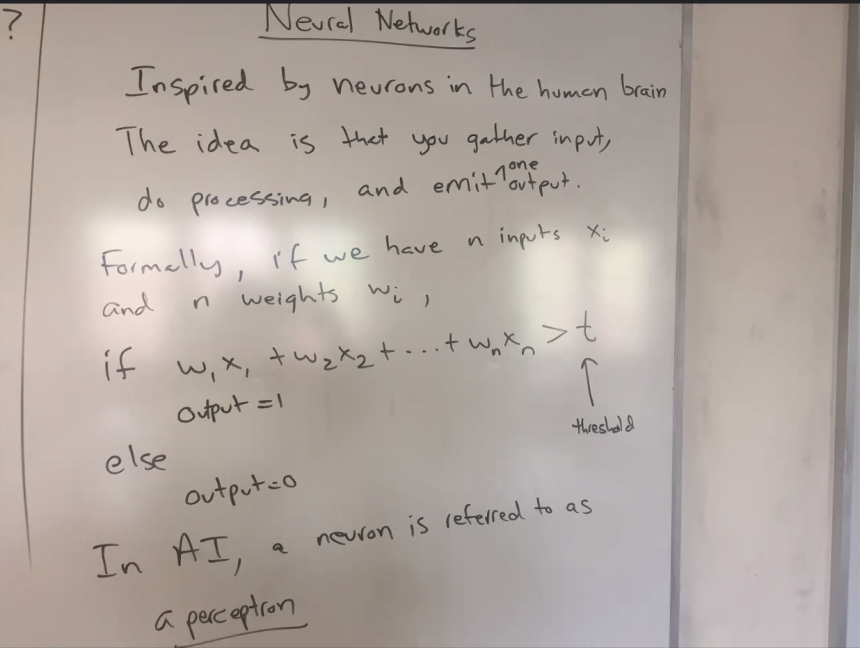 ?
Neural Networks
Inspired by neurons in the human brain
The idea is that you gather input,
do processing, and emit one output.
Formally, if we have n inputs xᵢ
and n weights wᵢ,
if w₁x₁ + w₂x₂ + ... + wₙxₙ > t
threshold
output = 1
else
output = 0
In AI, a neuron is referred to as
a perceptron